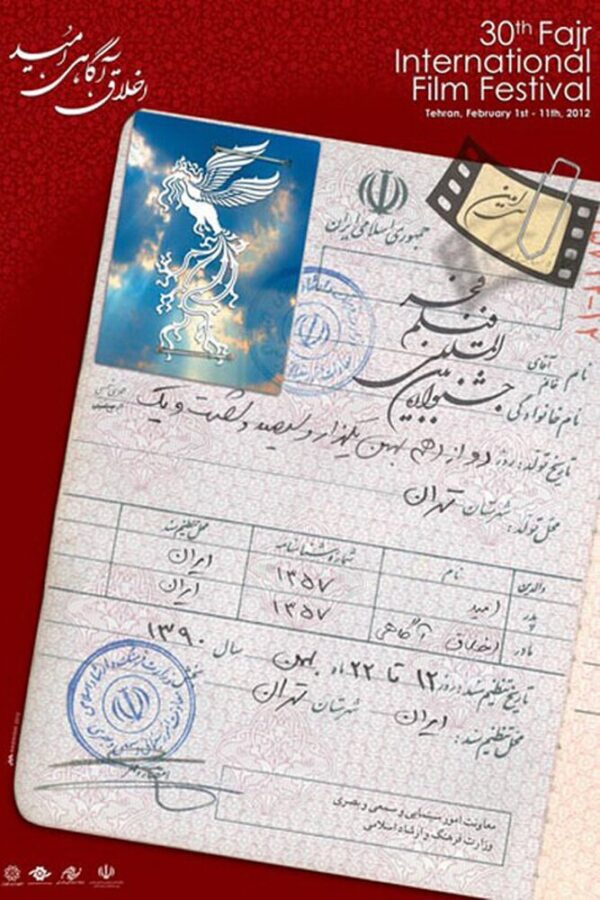 اخلاق آگاهی امید
30th Fajr
International
Film Festival
Tehran, February 1st - 11th, 2012
سی امین
جمهوری اسلامی ایران
جشنواره بین المللی فیلم فجر
نام آقای خانم
نام خانوادگی
تاریخ تولد: روز دوازدهم بهمن یکهزار و سیصد و شصت و یک
محل تولد: شهرستان تهران
والدین نام شماره شناسنامه محل تنظیم سند
پدر امید ۱۳۵۷ ایران
مادر اخلاق آگاهی ۱۳۵۷ ایران
تاریخ تنظیم سند: روز ۱۲ تا ۲۲ ماه بهمن سال ۱۳۹۰
محل تنظیم سند: ایران شهرستان تهران
معاونت امور سینمایی و سمعی و بصری
وزارت فرهنگ و ارشاد اسلامی